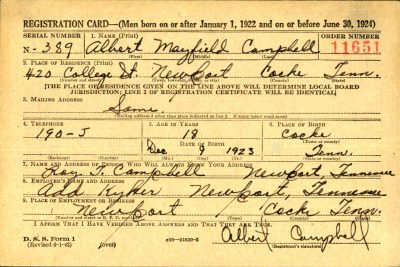 REGISTRATION CARD—(Men born on or after January 1, 1922 and on or before June 30, 1924)
SERIAL NUMBER 1. NAME (Print) ORDER NUMBER
N-389 Albert Mayfield Campbell 11651
2. PLACE OF RESIDENCE (Print)
420 College St. Newport Cocke Tenn.
[THE PLACE OF RESIDENCE GIVEN ON THE LINE ABOVE WILL DETERMINE LOCAL BOARD
JURISDICTION; LINE 2 OF REGISTRATION CERTIFICATE WILL BE IDENTICAL]
3. MAILING ADDRESS
Same.
[Mailing address if other than place indicated on line 2. If same insert word same]
4. TELEPHONE 5. AGE IN YEARS 6. PLACE OF BIRTH
190-J 18 Cocke
DATE OF BIRTH (Town or county)
Dec 9 1923 Tenn.
(Mo.) (Day) (Yr.) (State or country)
7. NAME AND ADDRESS OF PERSON WHO WILL ALWAYS KNOW YOUR ADDRESS
Roy T. Campbell Newport, Tennessee
8. EMPLOYER'S NAME AND ADDRESS
Newport, Tennessee
9. PLACE OF EMPLOYMENT OR BUSINESS
Newport Cocke Tenn.
(Town) (County) (State)
I AFFIRM THAT I HAVE VERIFIED ABOVE ANSWERS AND THAT THEY ARE TRUE.
D. S. S. Form 1 Albert Campbell
(Revised 6-1-42) (over) (Registrant's signature)